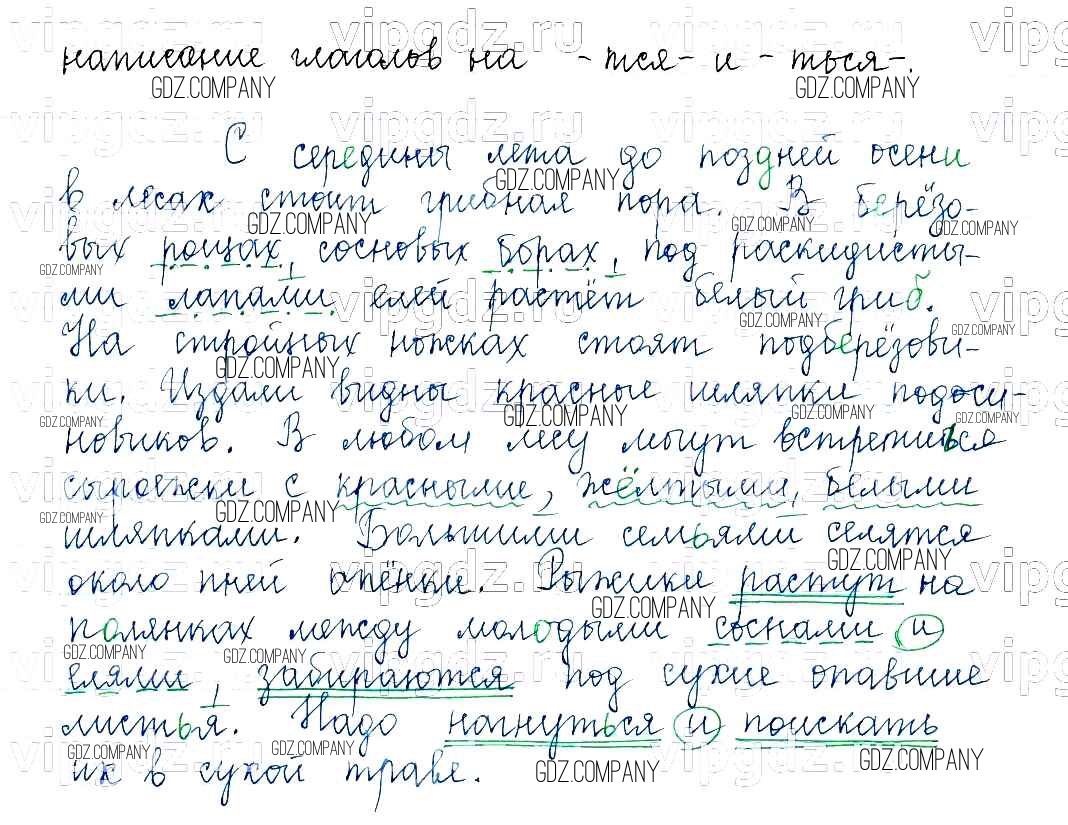 написание глаголов на -тся- и -ться-.
С середины лета до поздней осени
в лесах стоит грибная пора. В берёзо-
вых рощах, сосновых борах, под раскидисты-
ми лапами елей растёт белый гриб.
На стройных ножках стоят подберёзови-
ки. Издали видны красные шляпки подоси-
новиков. В любом лесу могут встретиться
сыроежки с красными, жёлтыми, белыми
шляпками. Большими семьями селятся
около пней опёнки. Рыжики растут на
полянках между молодыми соснами и
елями, забираются под сухие опавшие
листья. Надо нагнуться и поискать
их в сухой траве.
vipgdz.ru
GDZ.COMPANY